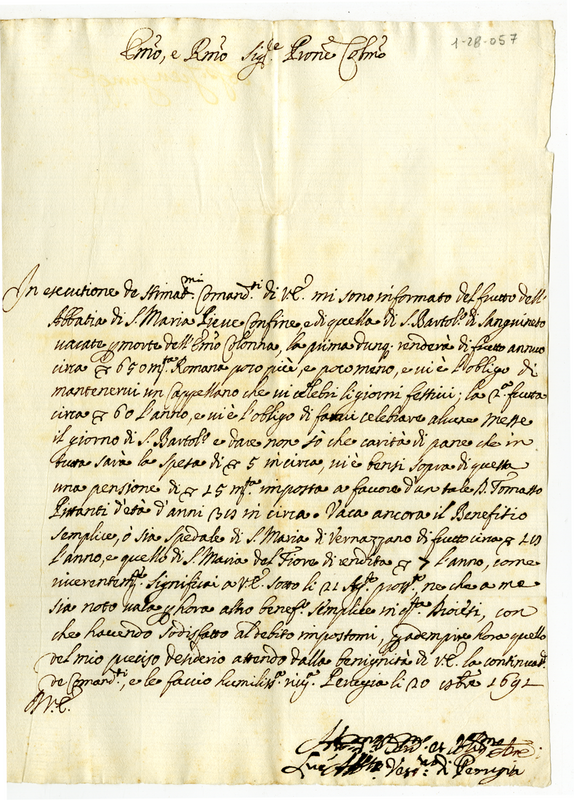 1-28-057
Em̃o, e Rm̃o Sig.re Pron̄e Colm̃o
In esecutione de stimat.mi Comand.ti di V.E. mi sono informato del frutto dell'
Abbatia di S. Maria Pieve Confine, e di quella di S. Bartol.o di Sanguineto
vacate p morte dell'Em̃o Colonna, la prima dunq. renderà di frutto annuo
circa 650 m.ta Romana poco più, e poco meno, e vi è l'obligo di
mantenervi un Cappellano che vi celebri li giorni festivi; la 2.a frutta
circa 60 l'anno, e vi è l'obligo di farvi celebrare alcune Messe
il giorno di S. Bartol.o e dare non so che carità di pane che in
tutto sarà la spesa di 5 in circa, vi è bensì sopra di questa
una pensione di 15 m.ta imposta a favore d'un tale D. Tomasso
d'età d'anni in circa. Vaca ancora il Benefitio
Semplice, ò sia Spedale di S. Maria di Vernazzano di frutto circa
l'anno, e quello di S. Maria del Fiore di rendita 7 l'anno, come
riverentem.e significai a V.E. sotto li 21 ne che a me
sia noto vaca p hora altro benef.o semplice in q.sta Diocesi, con
che havendo sodisfatto al debito impostomi, p adempire hora quello
del mio preciso desiderio attendo dalla benignità di V.E. la
de Comand.ti, e le faccio humiliss.a riv.a Perugia li 20 1691
D V.E.
di Perugia